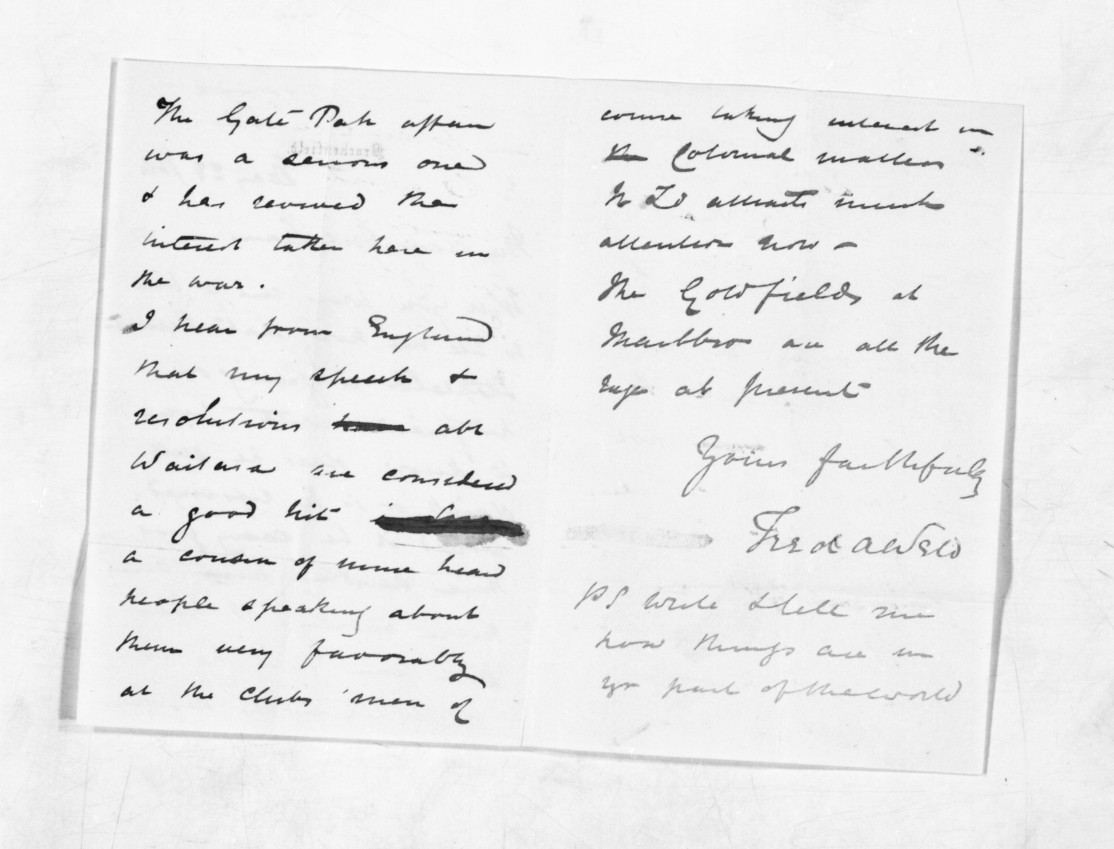 The Gate Pah affair
was a serious one
& has revived the
interest taken here in
the war.
I hear from England
that my speech &
resolutions abt
Waitara are considered
a good hit
a cousin of mine heard
people speaking about
them very favorably
at the clubs men of
course taking interest in
the Colonial matters
N Zd attracts much
attention now –
The Goldfields at
Marlbro are all the
rage at present
Yours faithfully
Fred A Weld
PS Write & tell me
how things are in
yr part of the world